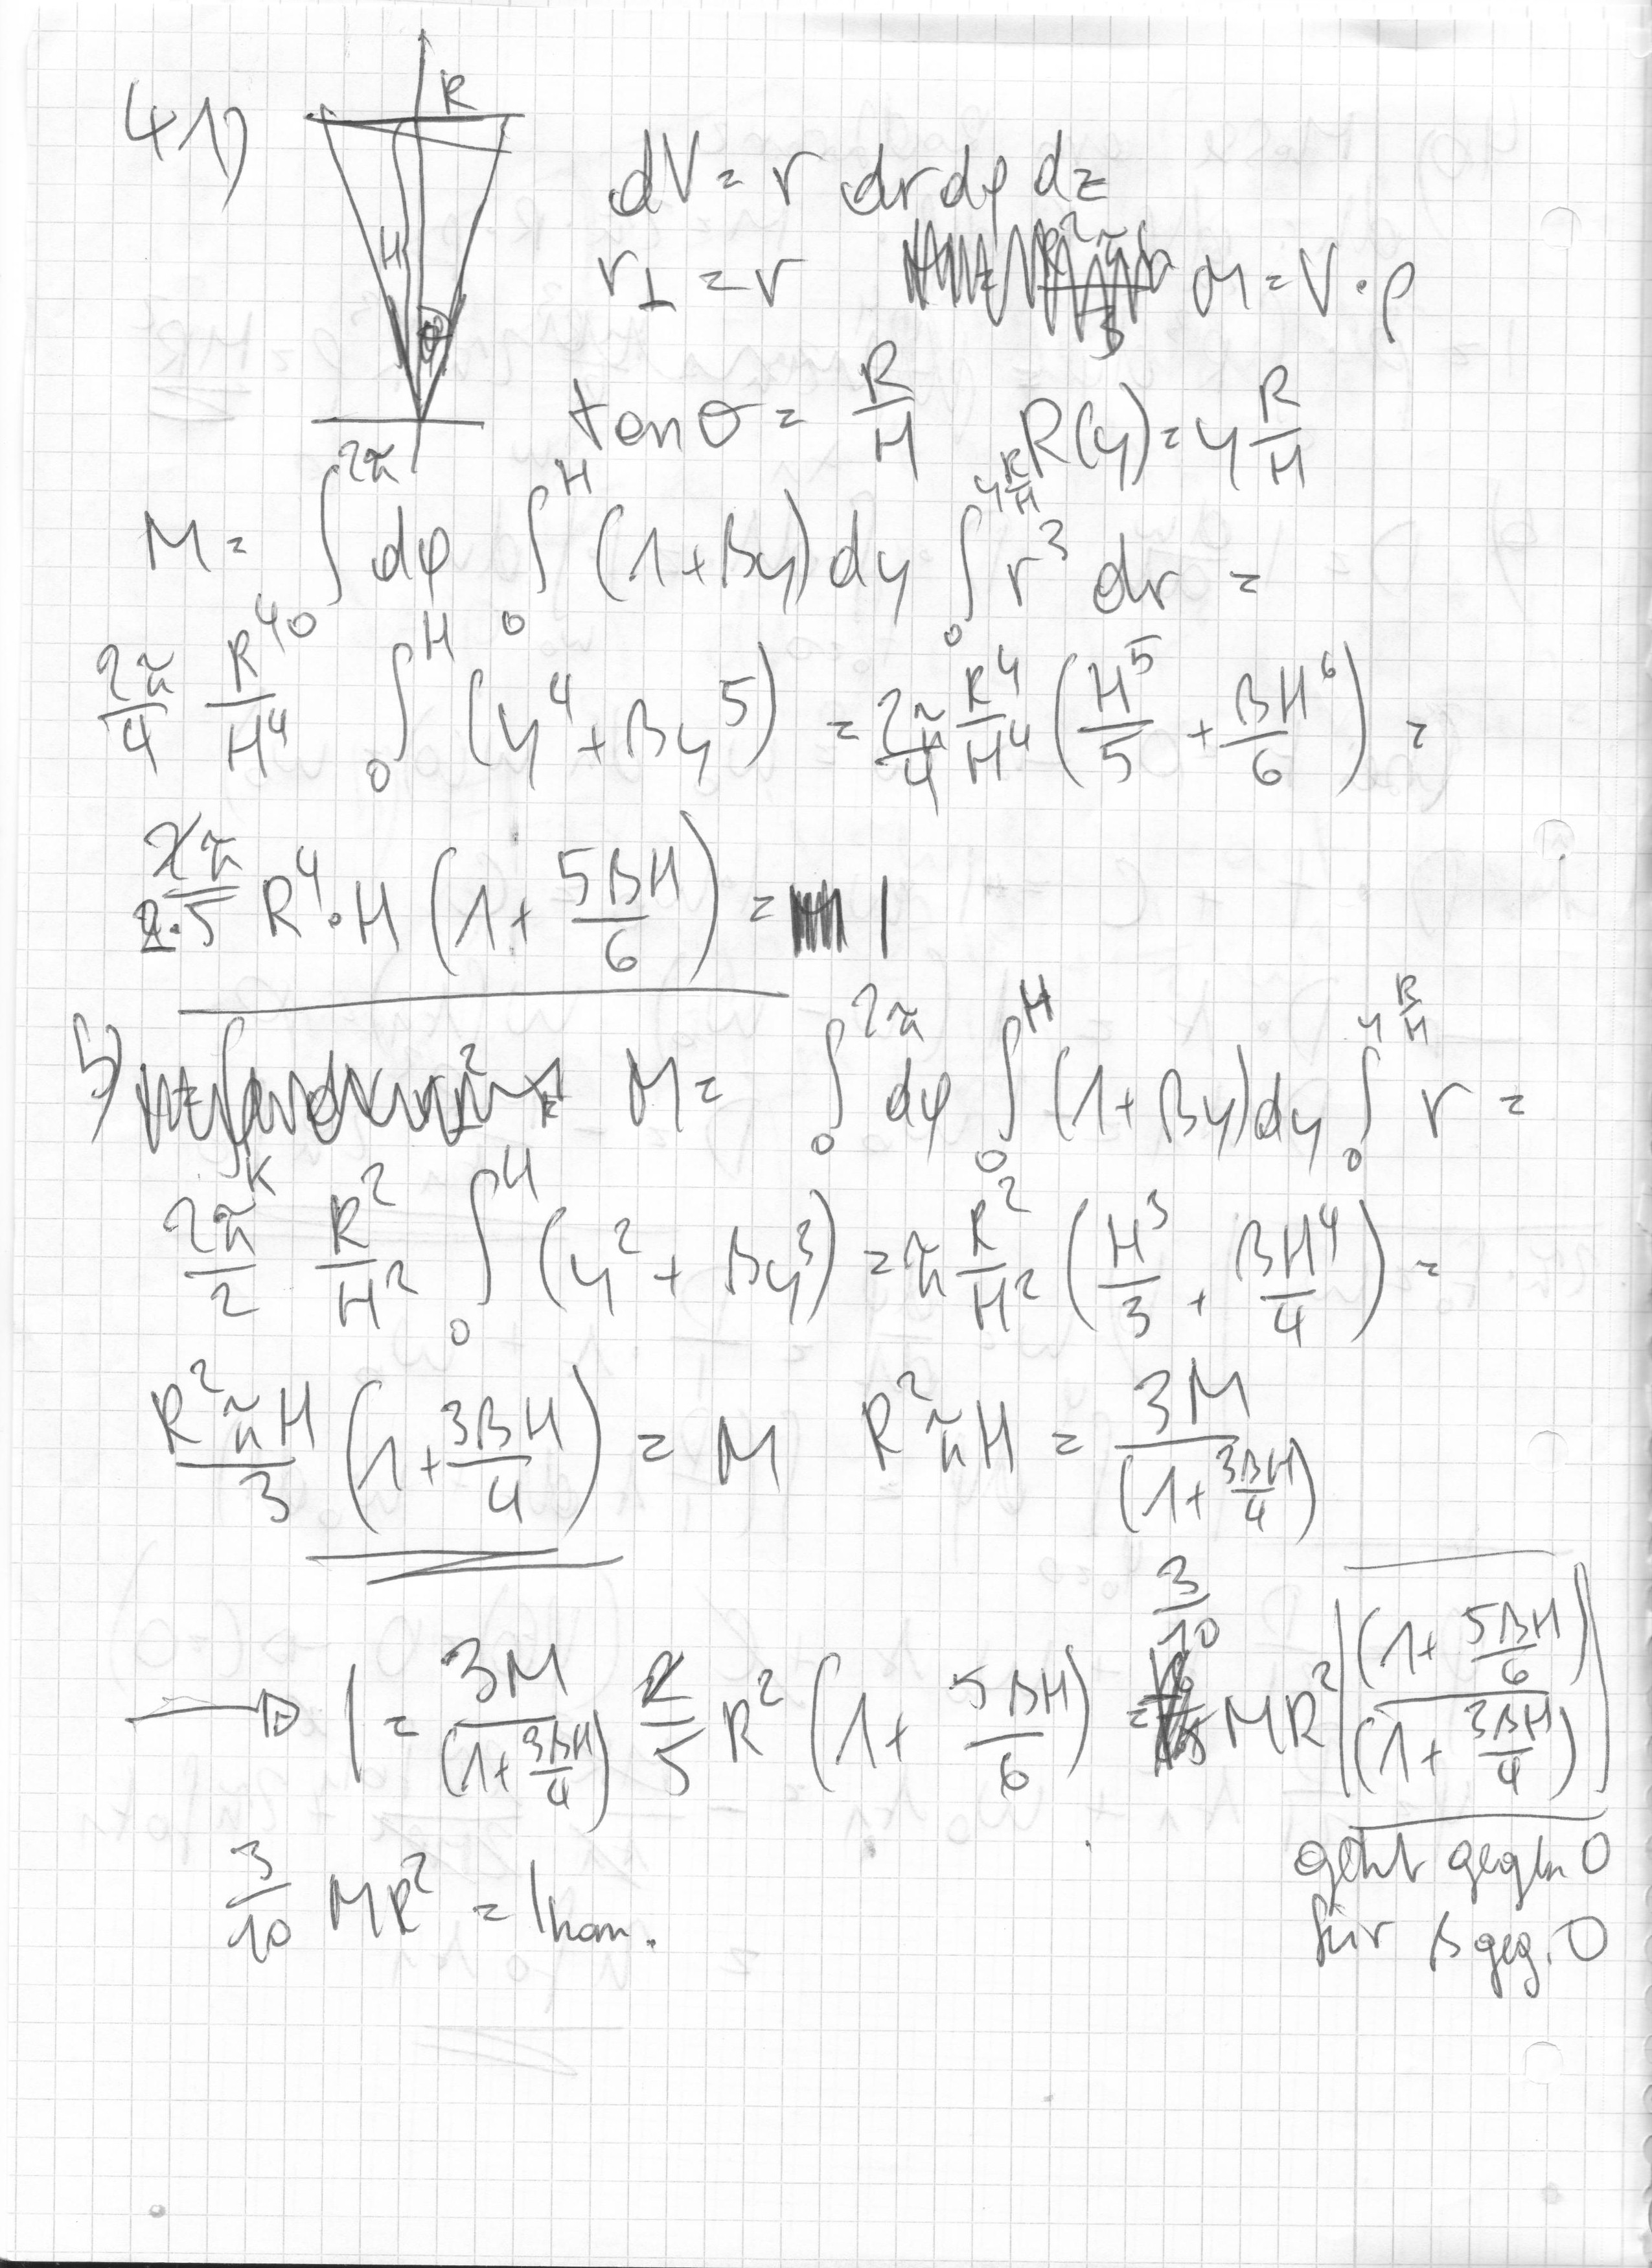 41)
R
H
θ
dV = r dr dφ dz
r⊥ = r    M = V·ρ
tanθ = R/H    R(y) = y R/H
M = ∫₀^{2π} dφ ∫₀^H (1+βy) dy ∫₀^{y R/H} r³ dr =
2π/4 R⁴/H⁴ ∫₀^H (y⁴ + βy⁵) = 2π/4 R⁴/H⁴ (H⁵/5 + βH⁶/6) =
2π/2·5 R⁴·H (1 + 5βH/6) = I
5) M = ∫₀^{2π} dφ ∫₀^H (1+βy) dy ∫₀^{y R/H} r =
2π/2 R²/H² ∫₀^H (y² + βy³) = π R²/H² (H³/3 + βH⁴/4) =
R²πH/3 (1 + 3βH/4) = M    R²πH = 3M/(1 + 3βH/4)
→ I = 3M/(1 + 3βH/4) 2/5 R² (1 + 5βH/6) = 3/10 MR² ((1 + 5βH/6)/(1 + 3βH/4))
geht gegen 0
für β geg. 0
3/10 MR² = I hom.